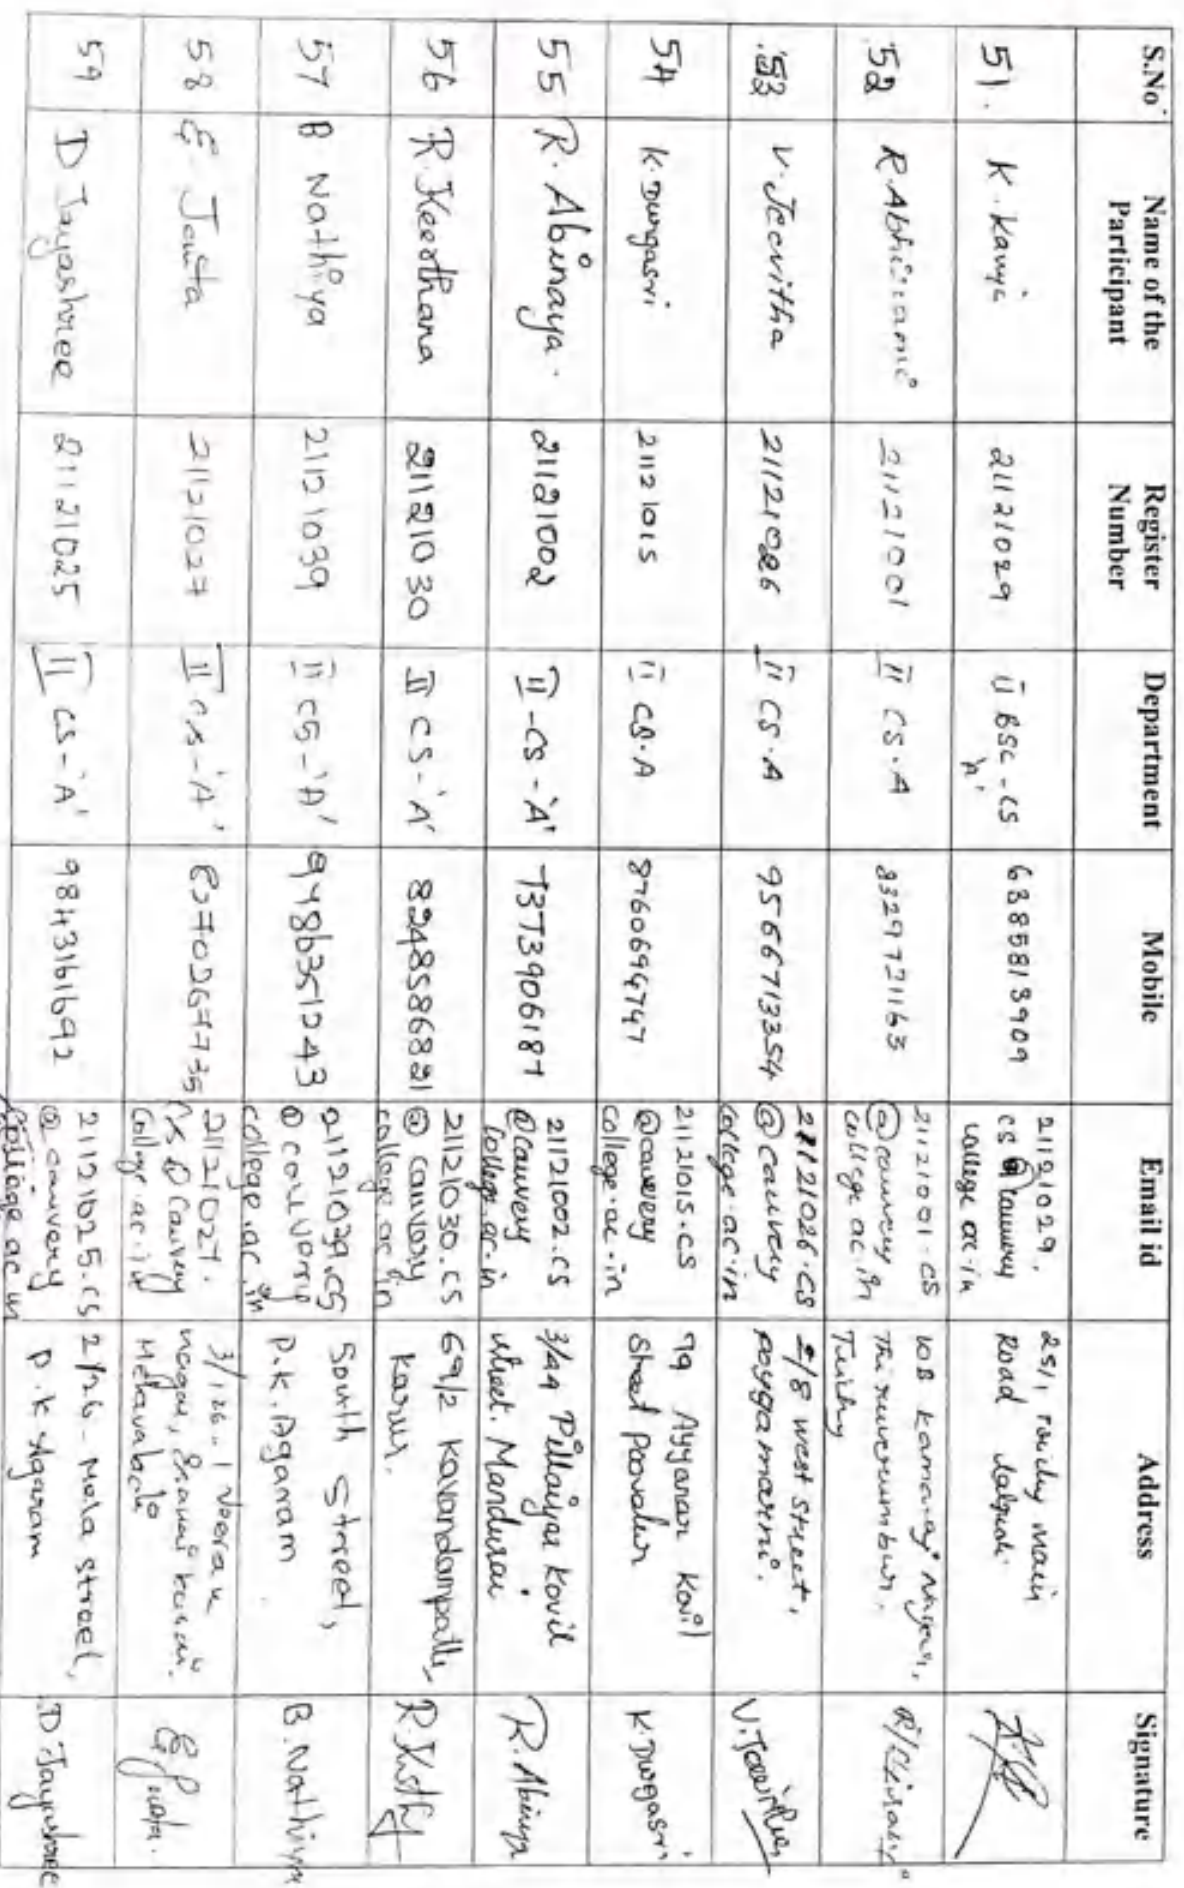 S.No Name of the Participant Register Number Department Mobile Email id Address Signature
51. K. Kavya 21121029 II BSC - CS 'A' 6385813909 21121029. cs @ cauvery college ac.in 25/1, Main Road
52 R. 21121001 II CS.A 21121001.cs @cauvery college ac.in Thiruverumbur, Trichy
53 V. Jeevitha 21121026 II CS.A 9566713354 21121026.cs @cauvery college.ac.in 2/8 west street, V. Jeevitha
54 K. Durgasri 21121015 II CS.A 8760696747 21121015.cs @cauvery college.ac.in 79 Ayyanar Kovil Street K. Durgasri
55 R. Abinaya. 21121002 II -CS -'A' 7373906187 21121002.cs @cauvery college.ac.in 3/44 Pillaiyar Kovil street. Mandurai R. Abinaya
56 R. Keerthana 21121030 II CS-'A' 8248586821 21121030.cs @ cauvery college ac in 69/2 Karur.
57 B. Nathiya 21121039 II CS-'A' 9486351243 21121039.cs @ cauvery college.ac.in South Street, P.K. Agaram. B. Nathiya
58 E. 21121027 II CS-'A' 21121027. cs @ Cauvery College.ac.in
59 D Jayashree 21121025 II CS-'A' 9843161692 21121025.cs @ cauvery college ac in 2/26- Mela street, P.K Agaram D. Jayashree